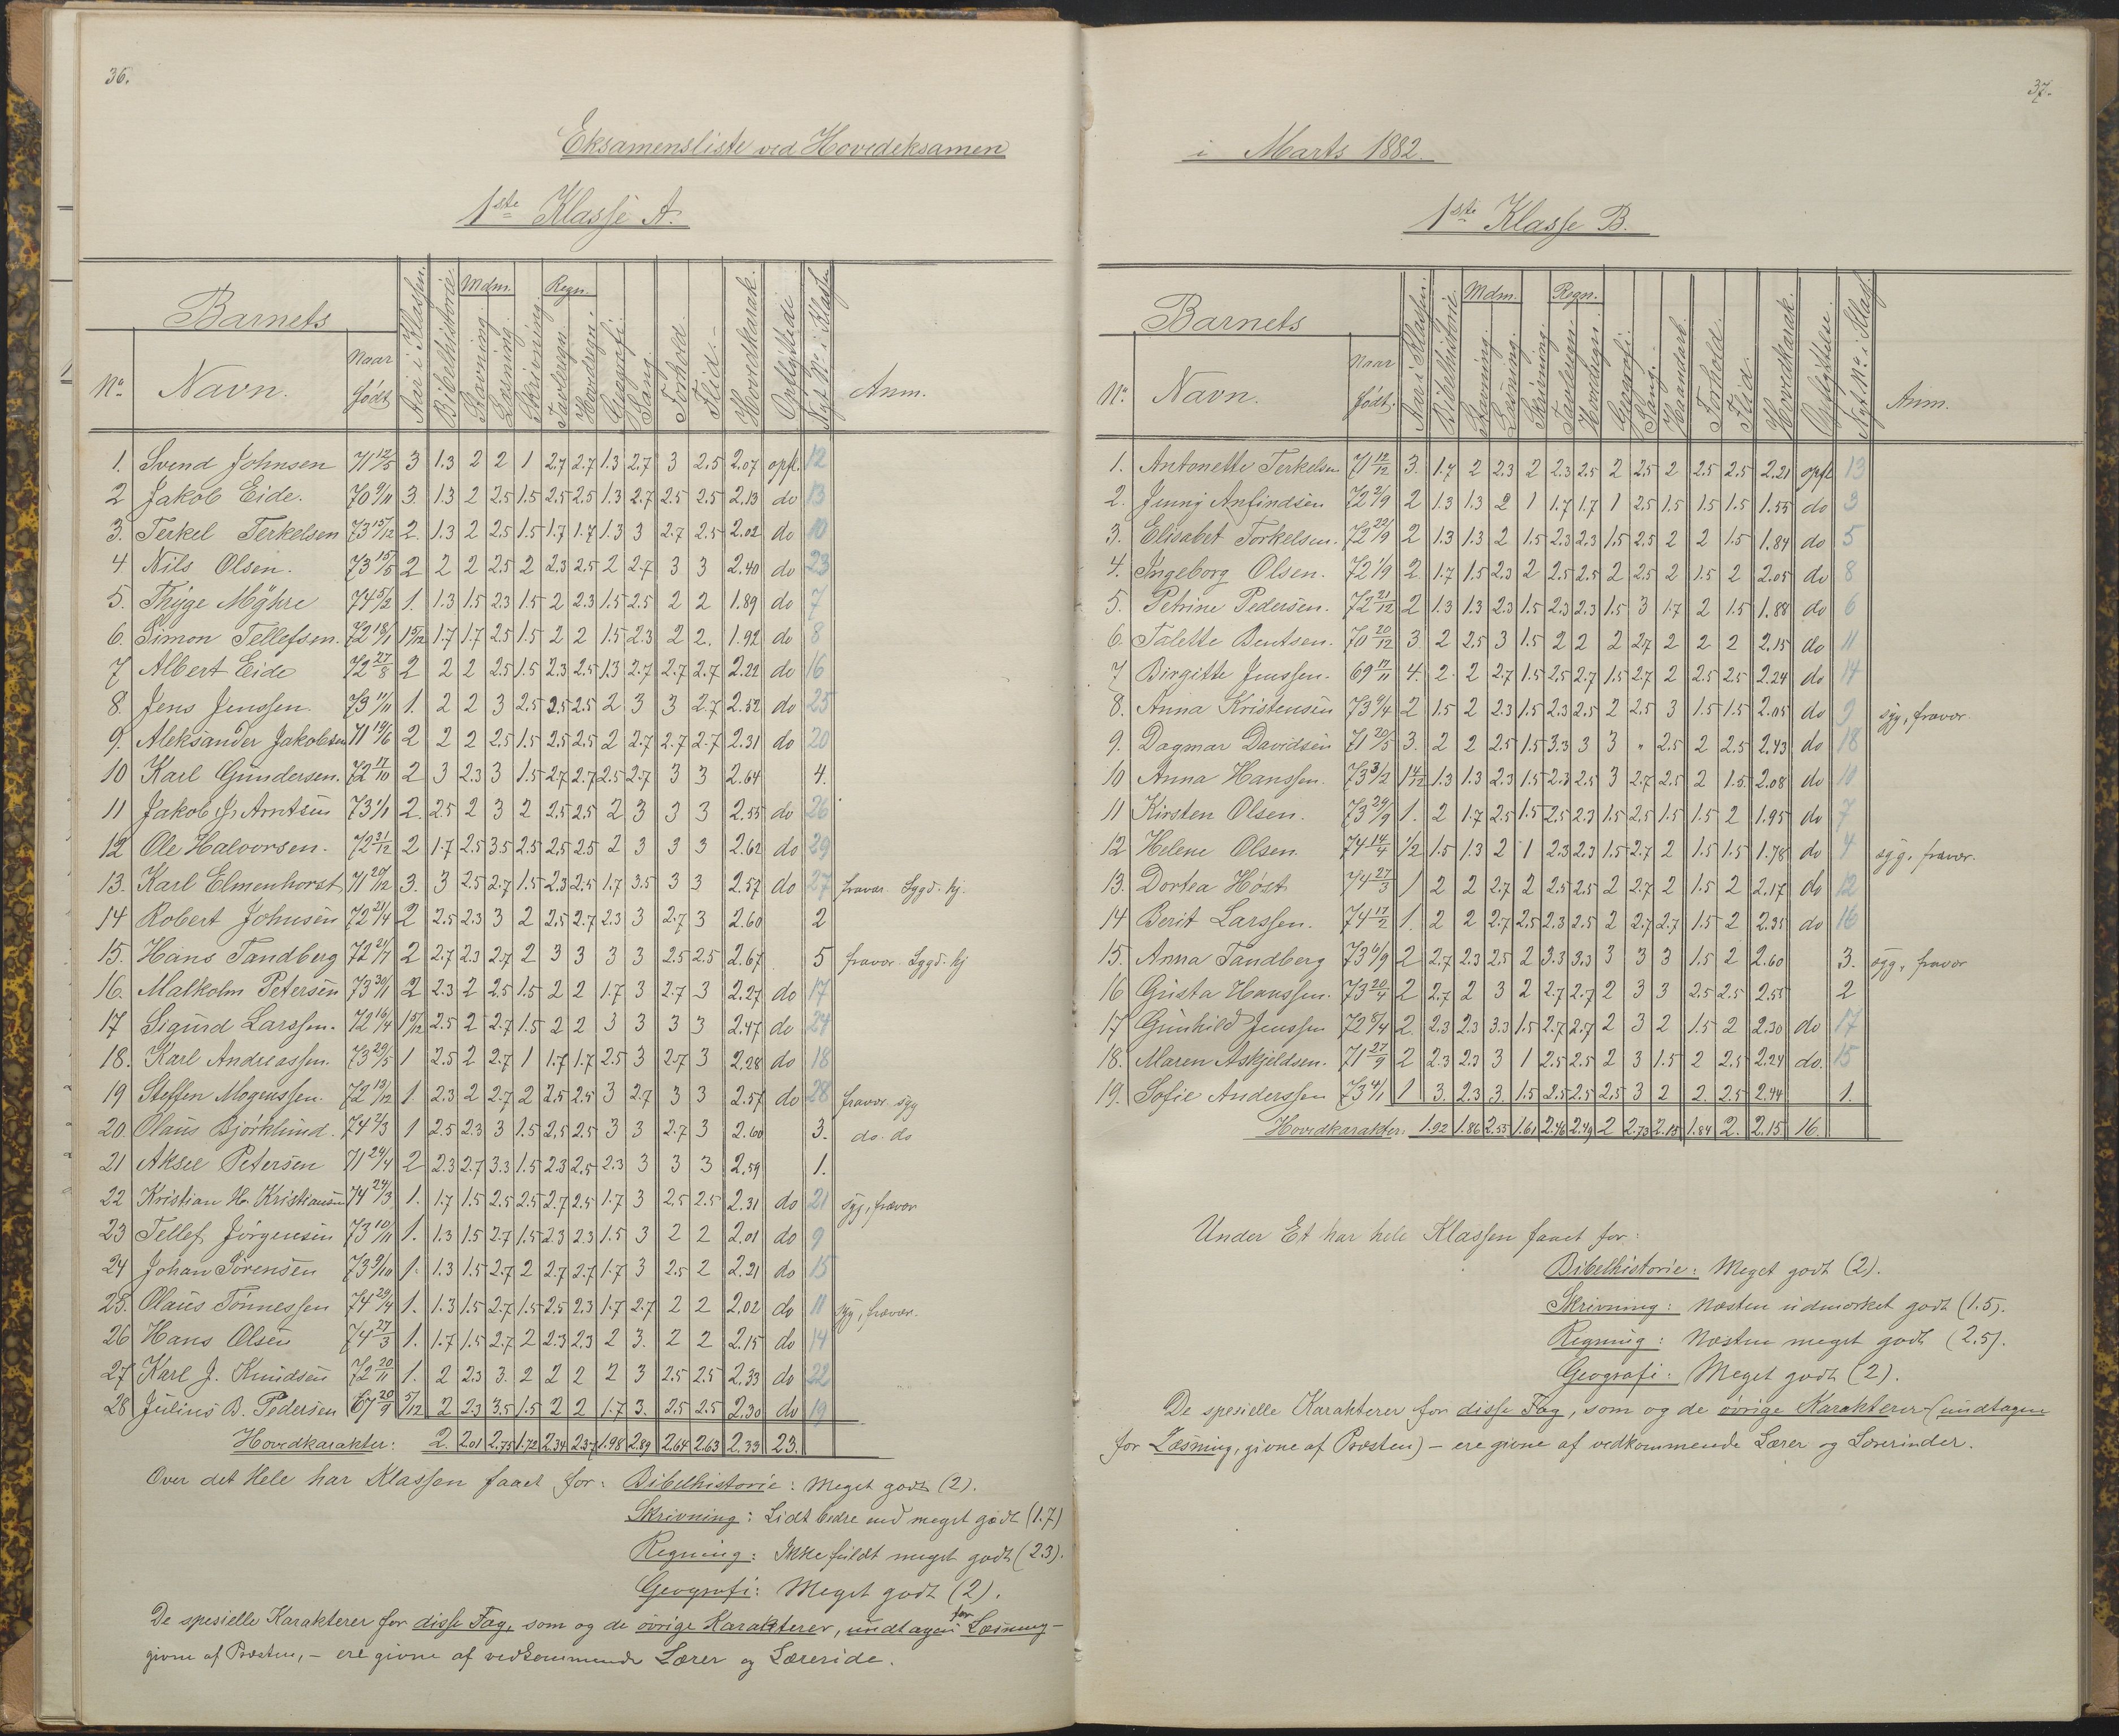 36.
Eksamensliste ved Hovedeksamen
1ste Klasse A.
Barnets
No Navn. Naar født Aar i Klassen. Bibelhistorie. Mdm. Stavning. Læsning. Skrivning. Regn. Tavleregn. Hovedregn. Geografi. Sang. Forhold. Flid. Hovedkarak. Opflyttede Nyt No i Klassen Anm.
1. Svend Johnsen 71 12/5 3 1.3 2 2 1 2.7 2.7 1.3 2.7 3 2.5 2.07 opfl. 12
2 Jakob Eide. 70 9/11 3. 1.3 2 2.5 1.5 2.5 2.5 1.3 2.7 2.5 2.5 2.13 do 13
3. Terkel Terkelsen 73 15/12 2. 1.3 2 2.5 1.5 1.7 1.7 1.3 3 2.7 2.5 2.02 do 10
4. Nils Olsen. 73 15/5 2 2 2 2.5 2 2.3 2.5 2 2.7 3 3 2.40 do 23
5. Thyge Myhre 74 5/2 1. 1.3 1.5 2.3 1.5 2 2.3 1.5 2.5 2 2 1.89 do 7
6. Simon Tellefsen. 72 18/1 1 5/12 1.7 1.7 2.5 1.5 2 2 1.5 2.3 2 2. 1.92 do 8
7 Albert Eide 72 27/8 2 2 2 2.5 1.5 2.3 2.5 1.3 2.7 2.7 2.7 2.22 do 16
8. Jens Jenssen. 73 11/11 1. 2 2 3 2.5 2.5 2.5 2 3 3 2.7 2.52 do 25
9. Aleksander Jakobsen 71 19/6 2 2 2 2.5 1.5 2.5 2.5 2 2.7 2.7 2.7 2.31 do 20
10 Karl Gundersen. 72 17/10 2 3 2.3 3 1.5 2.7 2.7 2.5 2.7 3 3 2.64 4.
11 Jakob J. Arntsen 73 1/1 2. 2.5 2 3 2 2.5 2.5 2 3 3 3 2.55 do 26
12 Ole Halvorsen. 72 31/12 2 1.7 2.5 3.5 2.5 2.5 2.5 2 3 3 3 2.62 do 29
13. Karl Elmenhorst 71 29/12 3. 3 2.5 2.7 1.5 2.3 2.5 1.7 3.5 3 3 2.57 do 27 fravær. Sygd. hj.
14 Robert Johnsen 72 21/4 2 2.5 2.3 3 2 2.5 2.7 2.3 3 2.7 3 2.60 2
15. Hans Tandberg 72 24/7 2 2.7 2.3 2.7 2 3 3 3 3 2.5 2.5 2.67 5 fravær. Sygd. hj
16. Malkolm Petersen 73 30/11 2 2.3 2 2.5 1.5 2 2 1.7 3 2.7 3 2.27 do 17
17 Sigurd Larssen. 72 16/4 1 5/12 2.5 2 2.7 1.5 2 2 3 3 3 3 2.47 do 24
18. Karl Andreassen. 73 29/5 1 2.5 2 2.7 1 1.7 1.7 2.5 3 2.7 3 2.28 do 18
19 Steffen Mogenssen. 72 19/12 1. 2.3 2 2.7 2 2.5 2.5 3 2.7 3 3 2.57 do 28 fravær. syg
20. Olaus Bjørklund. 74 2/3 1 2.5 2.3 3 1.5 2.5 2.5 3 3 2.7 3 2.60 3. do. do
21 Aksel Petersen 71 24/4 2 2.3 2.7 3.3 1.5 2.3 2.5 2.3 3 3 3 2.59 1.
22 Kristian H. Kristiansen 74 24/3 1. 1.7 1.5 2.5 2.5 2.7 2.5 1.7 3 2.5 2.5 2.31 do 21 syg, fravær
23 Tellef Jörgensen 73 10/11 1. 1.3 1.5 2.7 1.5 2.3 2.3 1.5 3 2 2 2.01 do 9
24 Johan Sörensen 73 9/10 1. 1.3 1.5 2.7 2 2.7 2.7 1.7 3 2.5 2 2.21 do 15
25. Olaus Tönnessen 74 29/4 1. 1.3 1.5 2.7 1.5 2.5 2.3 1.7 2.7 2 2 2.02 do 11 syg, fravær.
26 Hans Olsen 74 27/3 1. 1.7 1.5 2.7 2 2.3 2.3 2 3. 2 2 2.15 do 14
27 Karl J. Knudsen 72 20/11 1. 2 2.3 3. 2 2 2 2 3 2.5 2.5 2.33 do 22
28 Julius B. Pedersen 67 20/9 5/12 2 2.3 3.5 1.5 2 2 1.7 3. 2.5 2.5 2.30 do 19
Hovedkarakter: 2. 2.01 2.75 1.72 2.34 2.37 1.98 2.89 2.64 2.63 2.33 23.
Over det Hele har Klassen faaet for: Bibelhistorie: Meget godt (2).
Skrivning: Lidt bedre end meget godt (1.7)
Regning: Ikke fuldt meget godt (2.3).
Geografi: Meget godt (2).
De spesielle Karakterer for disse Fag, som og de övrige Karakterer, undtagen for Læsning —
givne af Præsten, — ere givne af vedkommende Lærer og Læreride.
37.
i Marts 1882.
1ste Klasse B.
Barnets
No. Navn. Naar født. Aar i Klassen. Bibelhistorie. Mdm. Stavning. Læsning. Skrivning. Regn. Tavleregn. Hovedregn. Geografi. Sang. Haandarb. Forhold. Flid. Hovedkarak. Opflyttelse. Nyt No i Klas. Anm.
1. Antonette Terkelsen 71 12/12 3. 1.7 2 2.3 2 2.3 2.5 2 2.5 2 2.5 2.5 2.21 opfl 13
2. Jenny Anfindsen 72 2/9 2 1.3 1.3 2 1 1.7 1.7 1 2.5 1.5 1.5 1.5 1.55 do 3
3. Elisabet Torkelsen. 72 22/9 2 1.3 1.3 2 1.5 2.3 2.3 1.5 2.5 2 2 1.5 1.84 do 5
4. Ingeborg Olsen. 72 1/9 2 1.7 1.5 2.3 2 2.5 2.5 2 2.5 2 1.5 2 2.05 do 8
5. Petrine Pedersen. 72 21/12 2 1.3 1.3 2.3 1.5 2.3 2.3 1.5 3 1.7 2 1.5 1.88 do 6
6. Talette Bentsen. 70 20/12 3. 2 2.5 3 1.5 2 2 2 2.7 2 2 2 2.15 do 11
7 Birgitte Jenssen. 69 17/11 4. 2. 2 2.7 1.5 2.5 2.7 1.5 2.7 2 2.5 2.5 2.24 do 14
8. Anna Kristensen 73 9/4 2 1.5 2 2.3 1.5 2.3 2.5 2 2.5 3 1.5 1.5 2.05 do 9 syg, fravær.
9. Dagmar Davidsen 71 20/5 3. 2 2 2.5 1.5 3.3 3 3 " 2.5 2 2.5 2.43 do 18
10 Anna Hanssen. 73 3/2 1 4/12 1.3 1.3 2.3 1.5 2.3 2.5 3 2.7 2.5 2 1.5 2.08 do 10
11 Kirsten Olsen. 73 29/9 1. 2 1.7 2.5 1.5 2.5 2.3 1.5 2.5 1.5 1.5 2 1.95 do 7
12 Helene Olsen. 74 14/4 1/2 1.5 1.3 2 1 2.3 2.3 1.5 2.7 2 1.5 1.5 1.78 do 4 syg, fravær.
13. Dortea Höst 74 27/3 1 2 2 2.7 2 2.5 2.5 2 2.7 2 1.5 2 2.17 do 12
14 Berit Larssen. 74 17/2 1. 2 2 2.7 2.5 2.3 2.5 2 2.7 2.7 1.5 2 2.35 do 16
15. Anna Tandberg 73 6/9 2 2.7 2.3 2.5 2 3.3 3.3 3 3 3 1.5 2 2.60 3. syg, fravær
16 Gusta Hanssen. 73 20/4 2 2.7 2 3 2 2.7 2.7 2 3 3 2.5 2.5 2.55 2
17 Gunhild Jenssen 72 8/4 2. 2.3 2.3 3.3 1.5 2.7 2.7 2 3 2 1.5 2 2.30 do 17
18. Maren Askjeldsen. 71 27/9 2 2.3 2.3 3 1 2.5 2.5 2 3 1.5 2 2.5 2.24 do. 15
19. Sofie Anderssen 73 4/1 1 3. 2.3 3. 1.5 2.5 2.5 2.5 3 2 2. 2.5 2.44 1.
Hovedkarakter. 1.92 1.86 2.55 1.61 2.46 2.49 2 2.73 2.15 1.84 2. 2.15 16.
Under Et har hele Klassen faaet for:
Bibelhistorie: Meget godt (2).
Skrivning: Næsten udmærket godt (1.5).
Regning: Næsten meget godt (2.5).
Geografi: Meget godt (2).
De spesielle Karakterer for disse Fag, som og de övrige Karakterer (undtagen
for Læsning, givne af Præsten) — ere givne af vedkommende Lærer og Lærerinder.